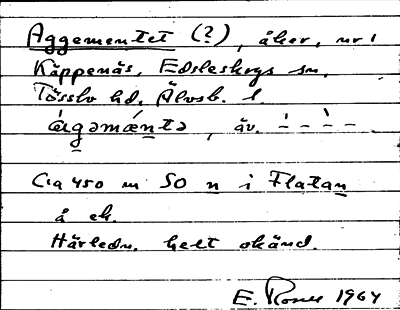 Aggementet (?), åker, nr 1
Käppenäs, Edsleskogs sn,
Tössbo hd, Älvsb. l.
ärgəmæ̀ntə, äv.
Ca 450 m SO n i Flatan
å ek.
Härledn. helt okänd.
E. 1964